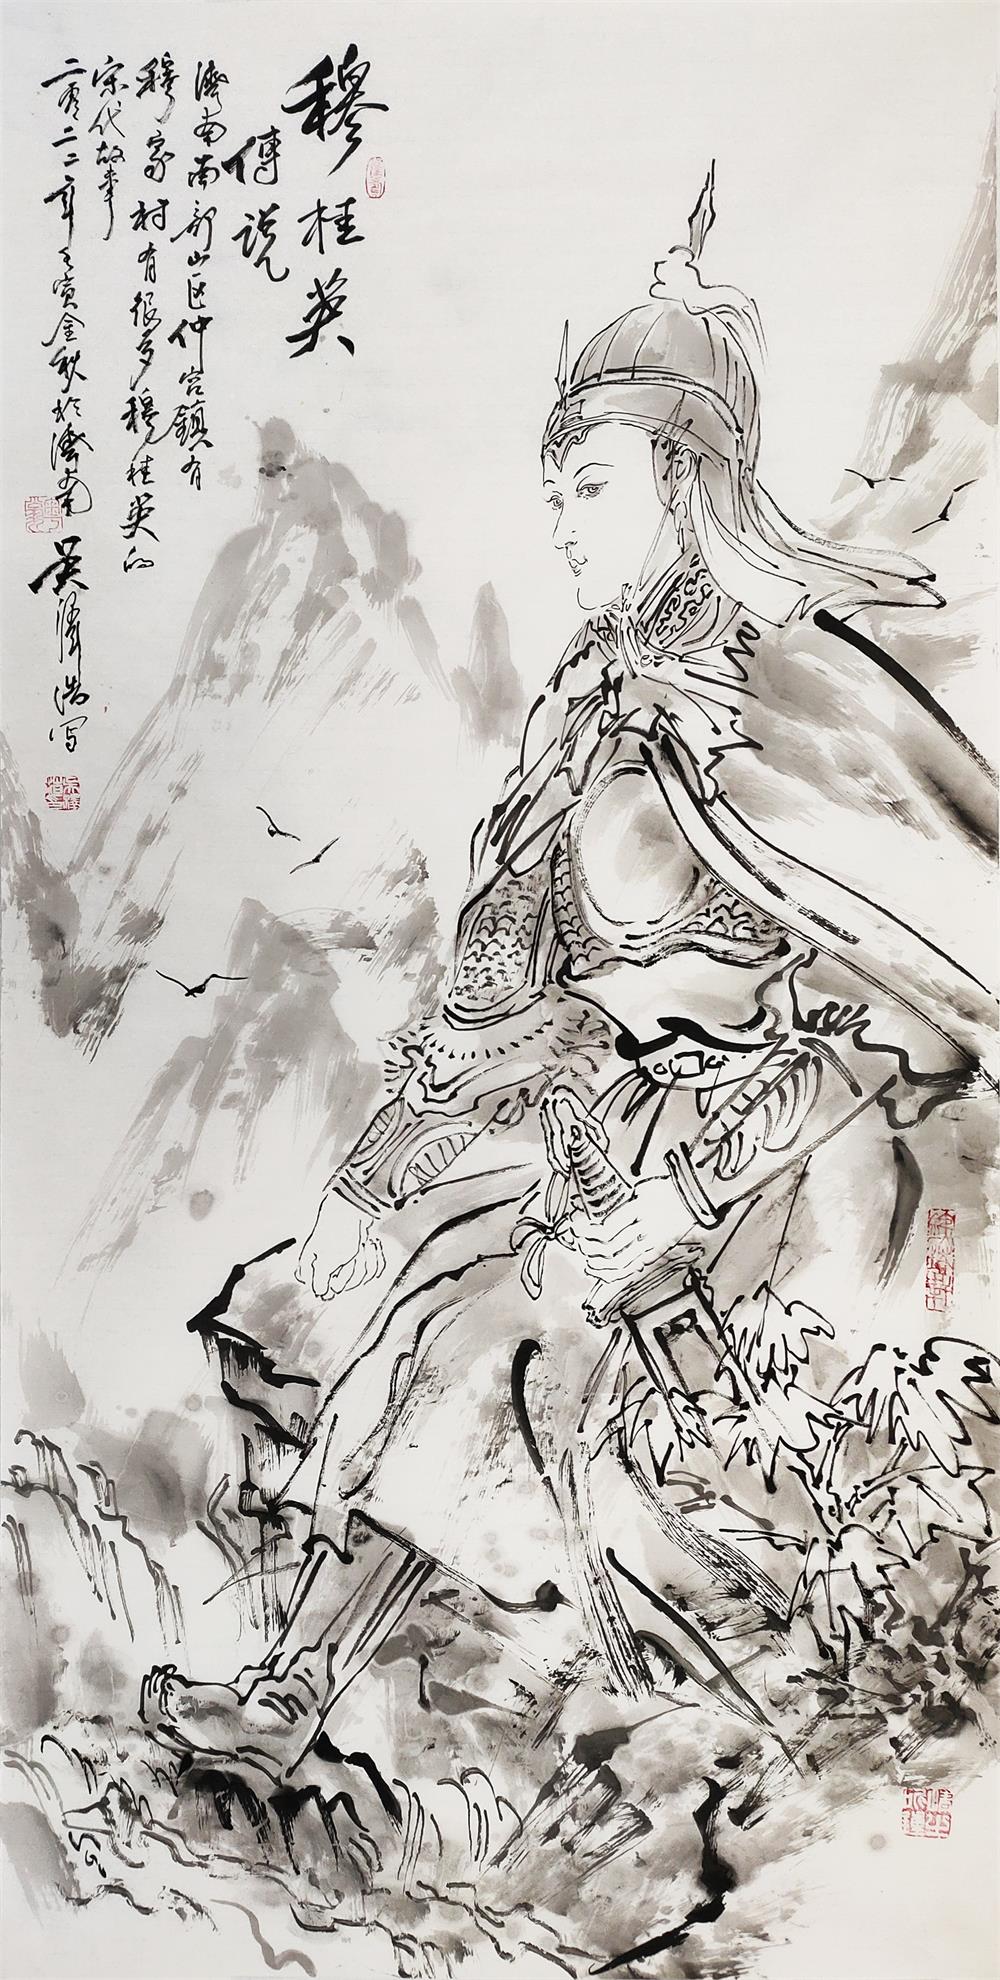 穆桂英
傳説
濟南南部山区仲宫鎮有
穆家村有很多穆桂英的
宋代故事
二零二二年壬寅金秋於濟南 吴澤浩写